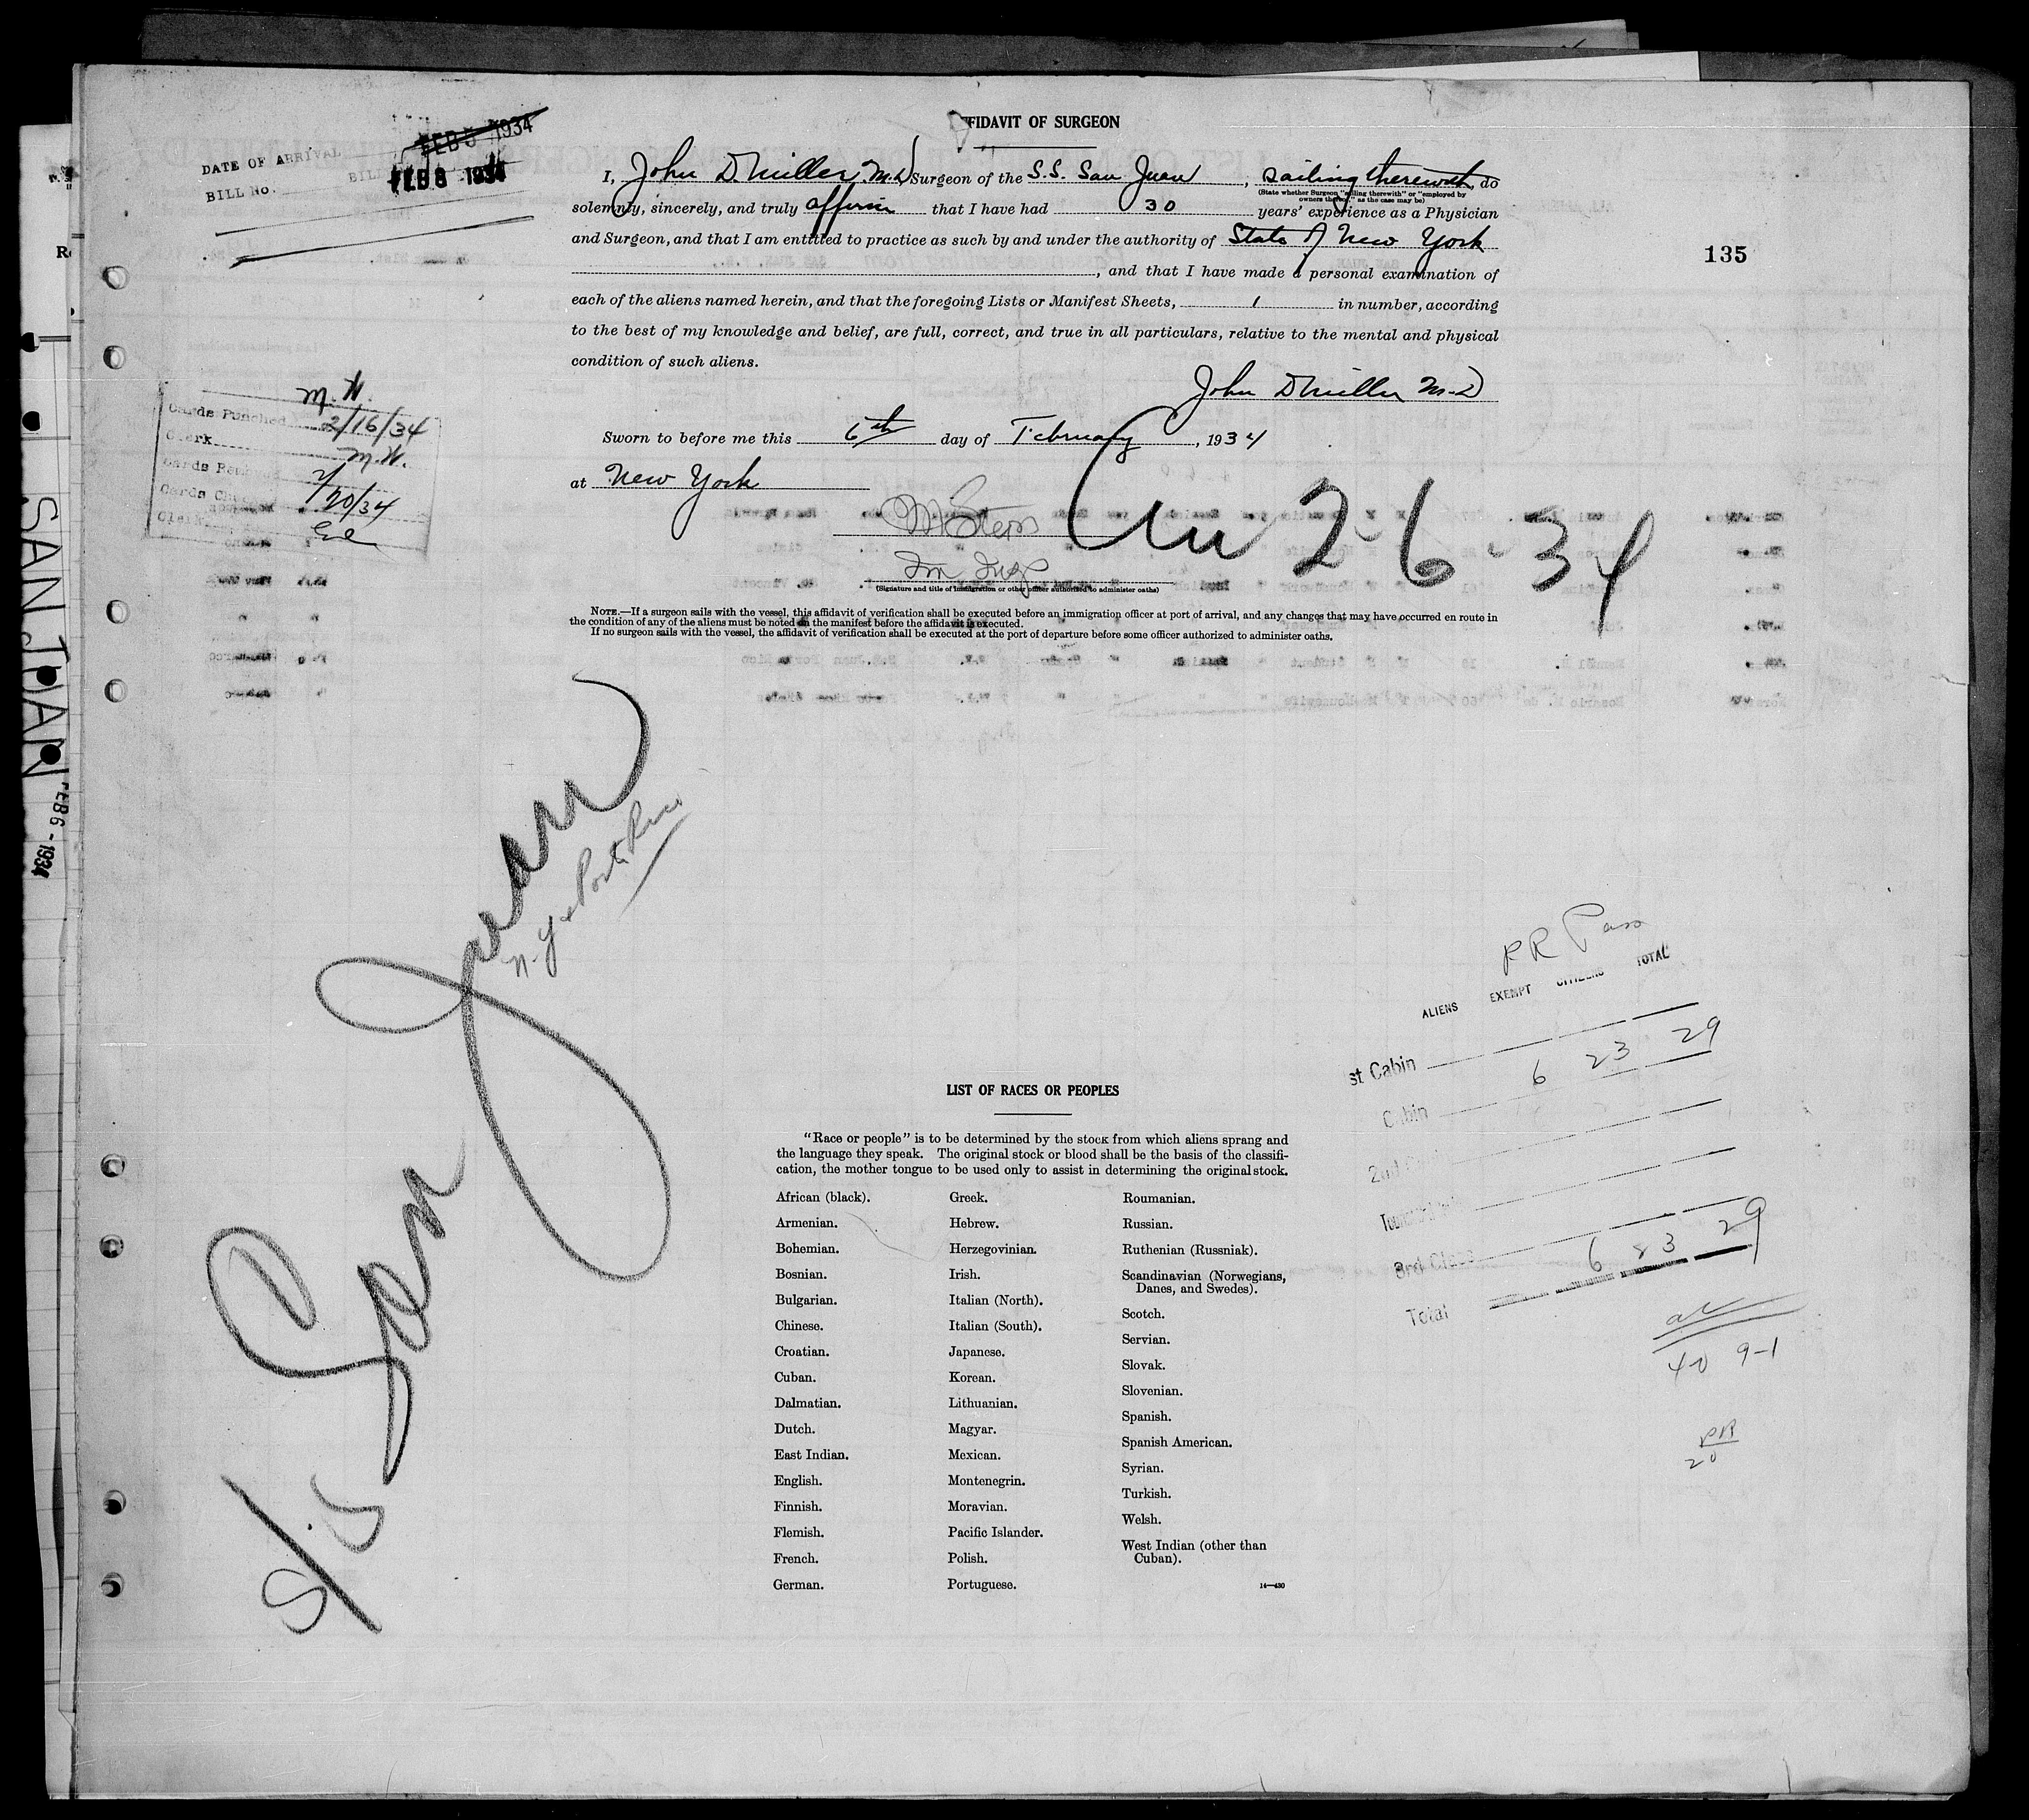 AFFIDAVIT OF SURGEON
FEB 5 1934
DATE OF ARRIVAL
FEB 8 1934
BILL No.
I, John D. Miller, M.D. Surgeon of the S.S. San Juan, sailing therewith, do
(State whether Surgeon "sailing therewith" or "employed by
owners thereof," as the case may be)
solemnly, sincerely, and truly affirm that I have had 30 years' experience as a Physician
and Surgeon, and that I am entitled to practice as such by and under the authority of State of New York
, and that I have made a personal examination of
each of the aliens named herein, and that the foregoing Lists or Manifest Sheets, 1 in number, according
to the best of my knowledge and belief, are full, correct, and true in all particulars, relative to the mental and physical
condition of such aliens.
135
John D Miller M.D
Sworn to before me this 6th day of February, 1934
at New York
2-6-34
(Signature and title of immigration or other officer authorized to administer oaths)
NOTE.—If a surgeon sails with the vessel, this affidavit of verification shall be executed before an immigration officer at port of arrival, and any changes that may have occurred en route in
the condition of any of the aliens must be noted on the manifest before the affidavit is executed.
If no surgeon sails with the vessel, the affidavit of verification shall be executed at the port of departure before some officer authorized to administer oaths.
M.H.
Cards Punched 2/16/34
Clerk M.H.
2/20/34
Clerk
SAN JUAN
FEB 6 - 1934
S/S San Juan
N.Y. & Porto Rico
PR Pass
ALIENS EXEMPT CITIZENS TOTAL
st Cabin 6 23 29
Cabin
2nd
3rd Class
Total 6 23 29
40 9-1
PR
20
LIST OF RACES OR PEOPLES
"Race or people" is to be determined by the stock from which aliens sprang and
the language they speak. The original stock or blood shall be the basis of the classifi-
cation, the mother tongue to be used only to assist in determining the original stock.
African (black).
Armenian.
Bohemian.
Bosnian.
Bulgarian.
Chinese.
Croatian.
Cuban.
Dalmatian.
Dutch.
East Indian.
English.
Finnish.
Flemish.
French.
German.
Greek.
Hebrew.
Herzegovinian.
Irish.
Italian (North).
Italian (South).
Japanese.
Korean.
Lithuanian.
Magyar.
Mexican.
Montenegrin.
Moravian.
Pacific Islander.
Polish.
Portuguese.
Roumanian.
Russian.
Ruthenian (Russniak).
Scandinavian (Norwegians,
Danes, and Swedes).
Scotch.
Servian.
Slovak.
Slovenian.
Spanish.
Spanish American.
Syrian.
Turkish.
Welsh.
West Indian (other than
Cuban).
14—430